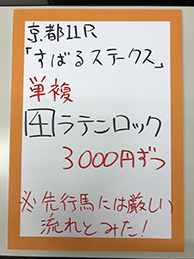 京都11R
「すばるステークス」
単複
4 ラテンロック
3000円ずつ
※先行馬には厳しい
流れとみた!